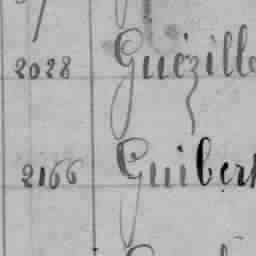 2028 Guézille
2166 Guibert